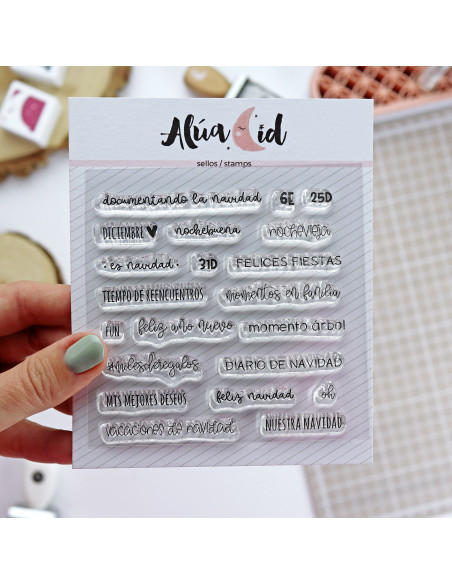 Alúa Cid
sellos / stamps
documentando la navidad 6E 25D
DICIEMBRE nochebuena nochevieja
· es navidad · 31D FELICES FIESTAS
TIEMPO DE REENCUENTROS momentos en familia
FUN feliz año nuevo momento árbol
#milesderegalos DIARIO DE NAVIDAD
MIS MEJORES DESEOS feliz navidad oh
vacaciones de navidad NUESTRA NAVIDAD